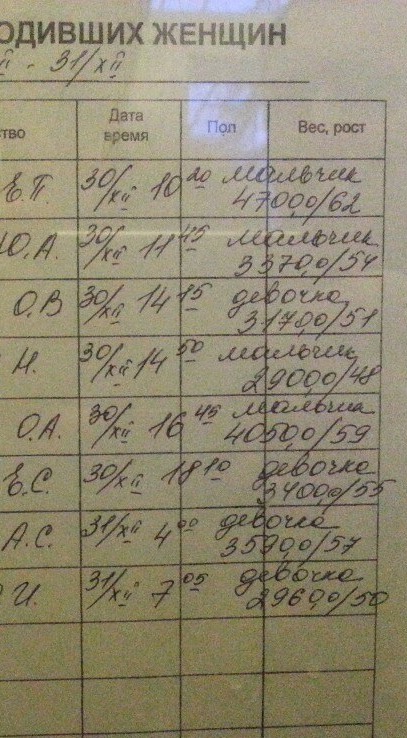 ОДИВШИХ ЖЕНЩИН
II - 31/XII
ство Дата время Пол Вес, рост
Е.П. 30/XII 10 20 мальчик 4700,0/62
Ю.А. 30/XII 11 45 мальчик 3370,0/54
О.В 30/XII 14 15 девочка 3170,0/51
Н. 30/XII 14 50 мальчик 2900,0/48
О.А. 30/XII 16 45 мальчик 4050,0/59
Е.С. 30/XII 18 10 девочка 3400,0/55
А.С. 31/XII 4 00 девочка 3590,0/57
И. 31/XII 7 05 девочка 2960,0/50